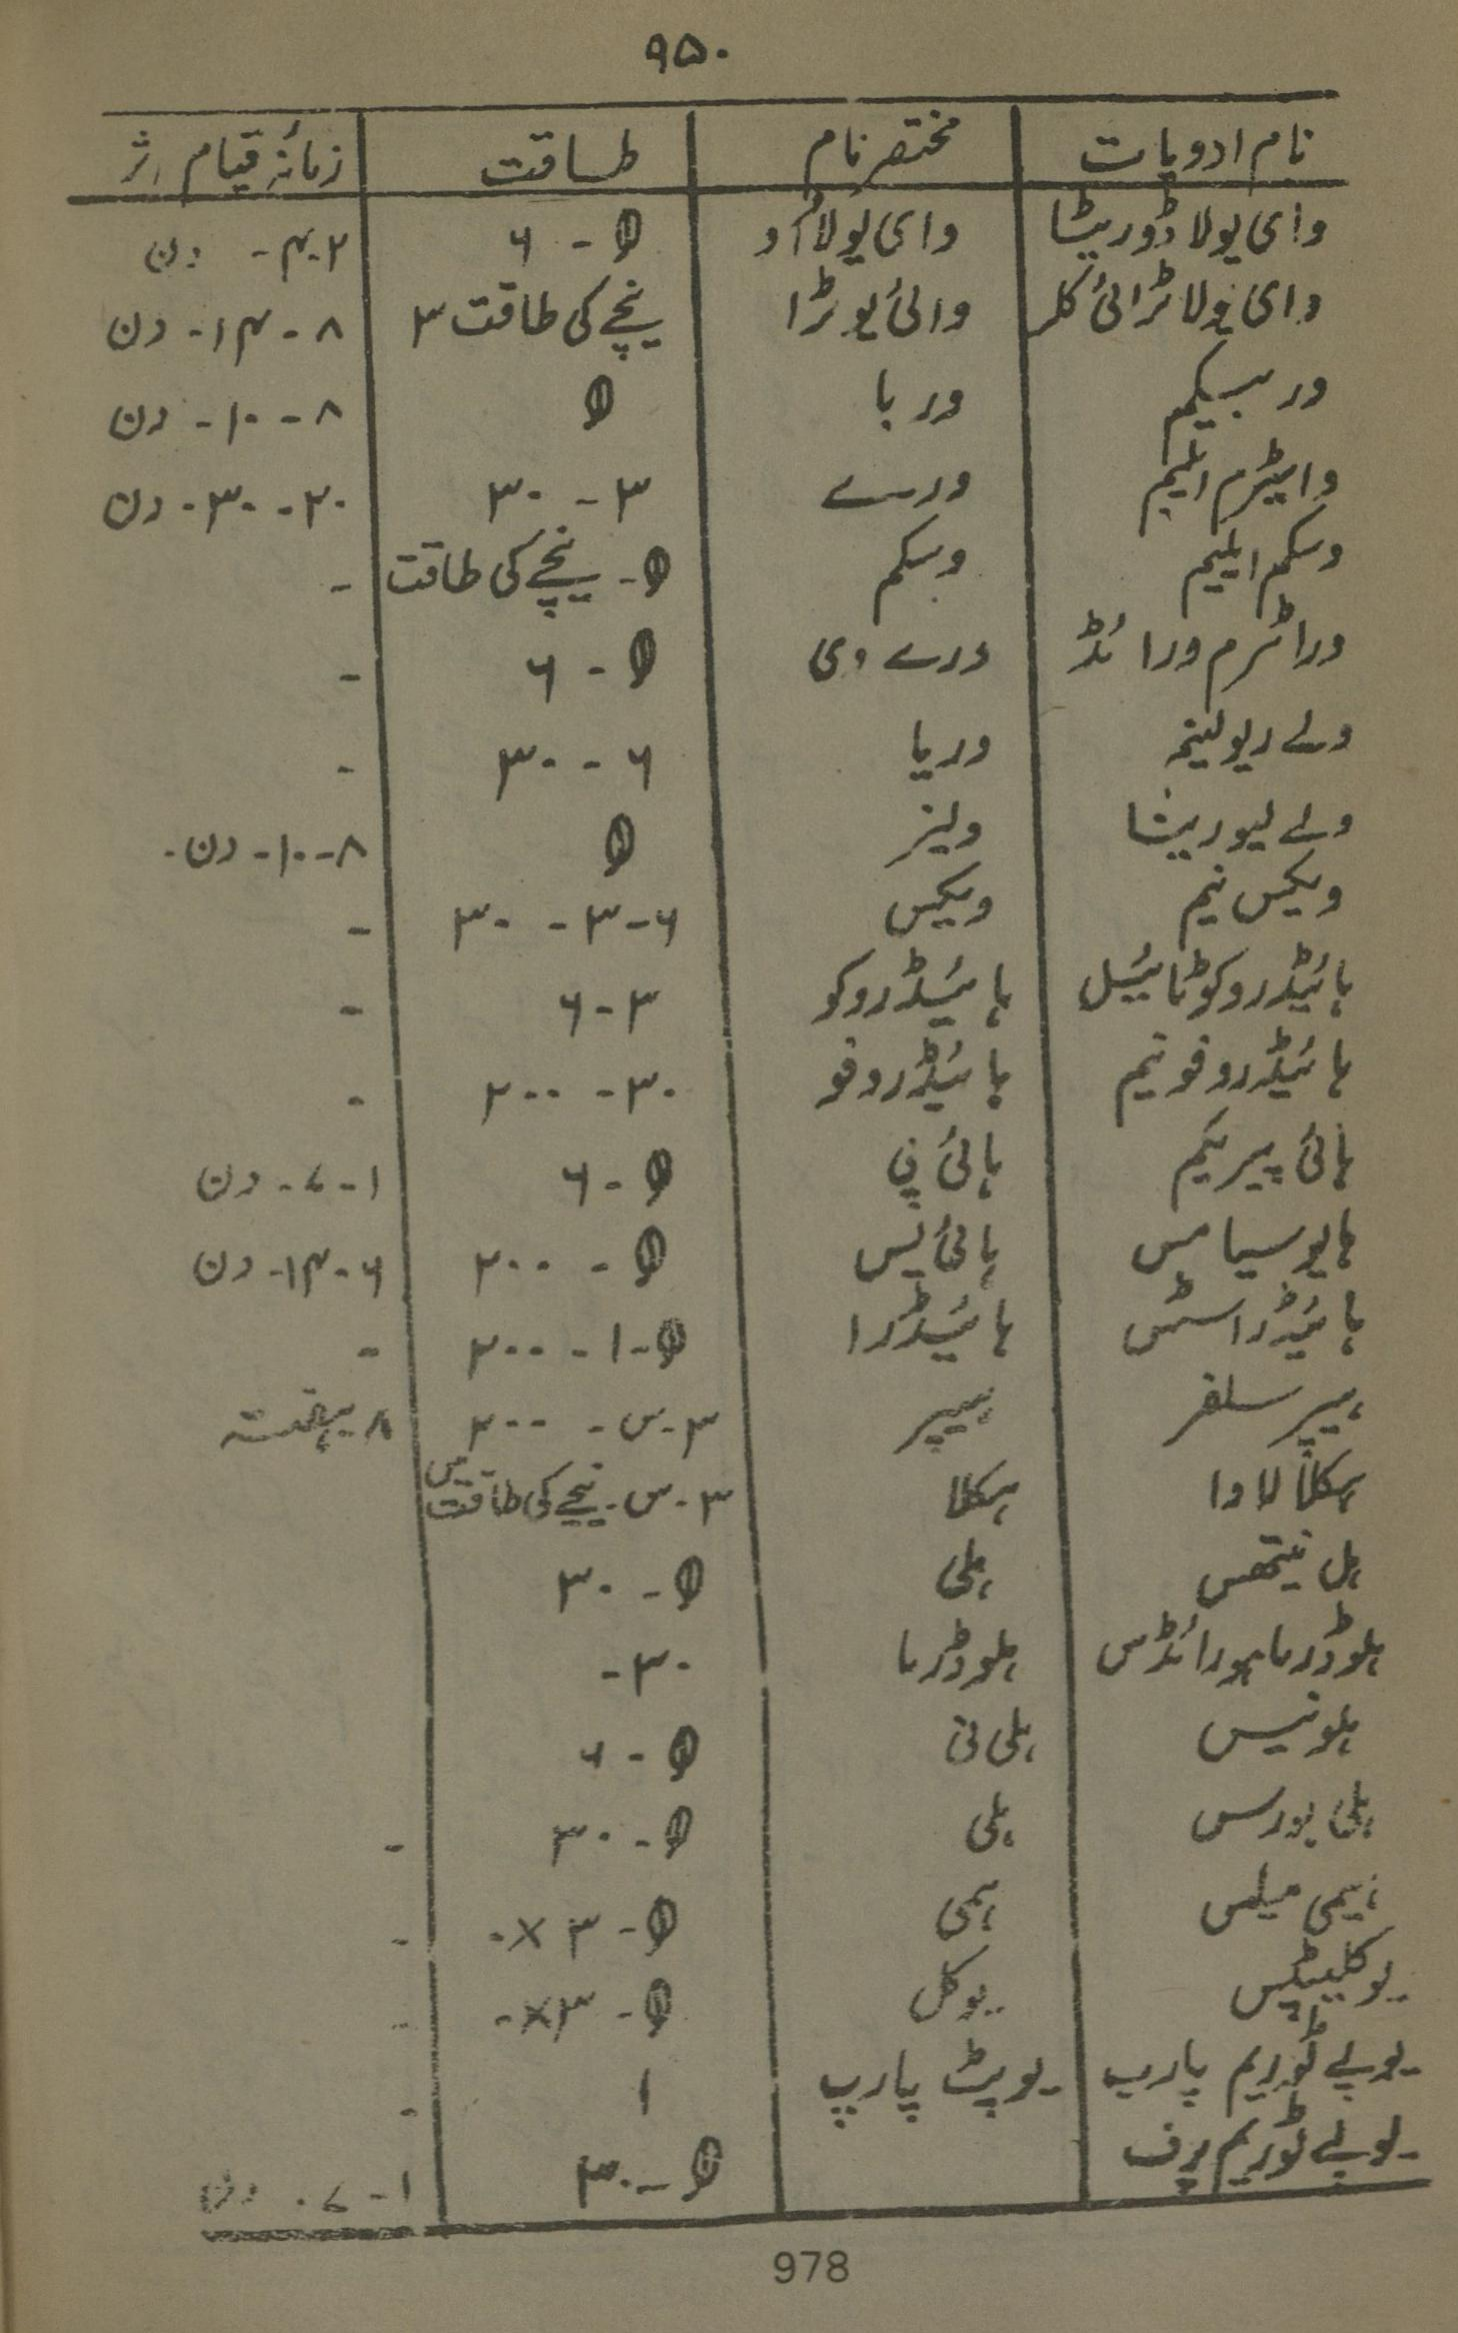 ۹۵۰
نام ادویات مختصر نام طاقت زمانۂ قیام اثر
وای یولا ڈوریٹا وای یولا اُو θ - ۶ ۲-۴ - دن
وای یولا ٹرائی کلر وائی یو ٹرا نیچے کی طاقت ۳ ۸ - ۱۴ - دن
وربسیکم وربا θ ۸ - ۱۰ - دن
وایٹرم ایلیم ورے ۳ - ۳۰ ۲۰ - ۳۰ - دن
وسکم ایلیم وسکم θ - نیچے کی طاقت -
وراٹرم ورائڈ ورے وی θ - ۶ -
ولے ریولینہ وریا ۶ - ۳۰ -
ولے لیوریشا ولیز θ ۸ - ۱۰ - دن -
ویکس نیم ویکس ۶ - ۳ - ۳۰ -
ہائیڈروکوٹائیل ہائیڈروکو ۳ - ۶ -
ہائیڈروفونیم ہائیڈروفو ۳۰ - ۲۰۰ -
ہائی پیریکم ہائی پی θ - ۶ ۱ - ۷ - دن
ہایوسیامس ہائی یس θ - ۲۰۰ ۶ - ۱۴ - دن
ہائیڈراسٹس ہائیڈرا θ - ۱ - ۲۰۰ -
ہیپر سلفر ہیپر ۳ - س - ۲۰۰ ۸ ہفتہ
ہکلا لاوا ہکلا ۳ - س - نیچے کی طاقت میں
ہل نیتھس ہلی θ - ۳۰
ہلوڈرما ہورائڈس ہلوڈرما ۳۰ -
ہلونیس ہلی نی θ - ۶
ہلی بورس ہلی θ - ۳۰ -
ہیمی میلس ہمی θ - ۳ × - -
یوکلیپٹس یوکل θ - ۳ × - -
یوپے ٹوریم پارپ یوپٹ پارپ ۱ -
یوپے ٹوریم پرف θ - ۳۰ ۱ - ۷ - دن
978